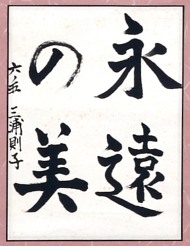 永遠
の美
六年 三浦則子